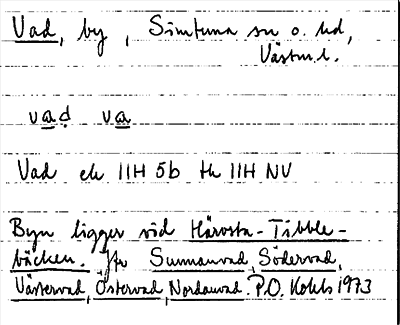 Vad, by, Simtuna sn o. hd,
Västm.l.
vad va
Vad ek 11H 5b tk 11H NV
Byn ligger vid Härvsta-Tibble-
bäcken. Jfr Sunnanvad, Södervad,
Västervad, Östervad, Nordanvad. P.O. Kohls 1973